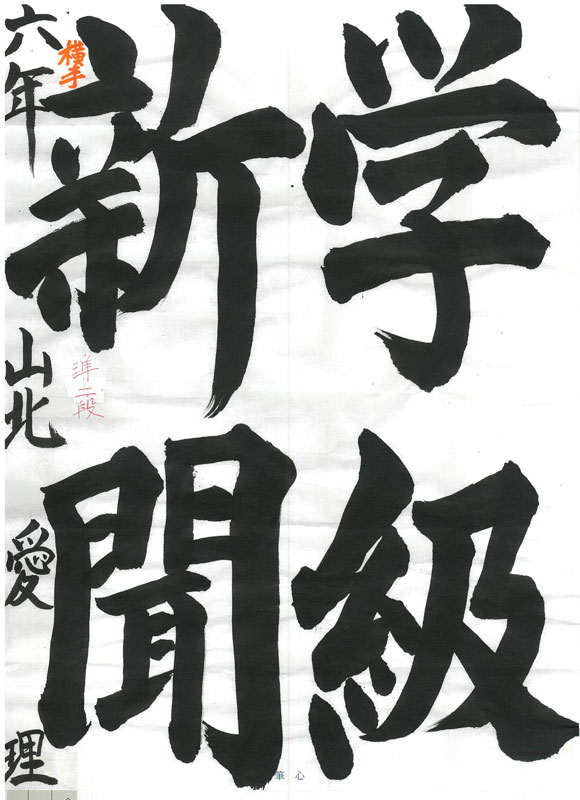 学級
新聞
六年 山北 愛理
横手
準二段
心筆